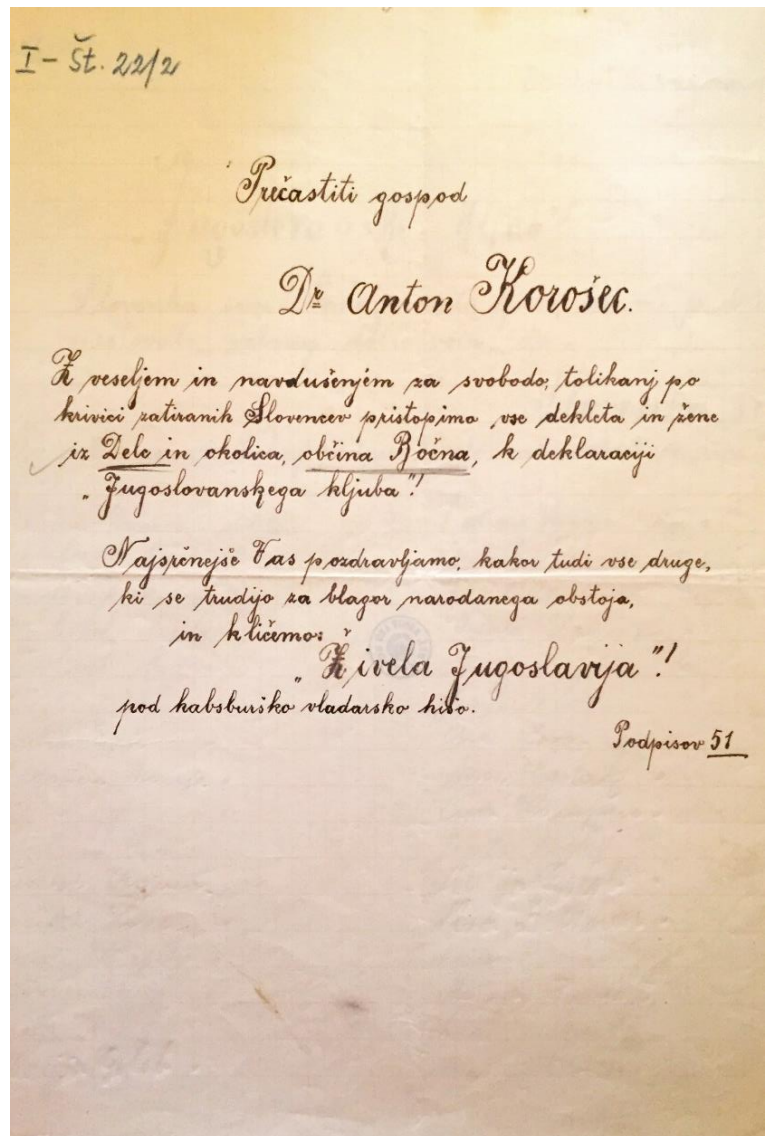 I - Št. 22/2
Prečastiti gospod
Dr Anton Korošec.
Z veseljem in navdušenjem za svobodo, tolikanj po
krivici zatiranih Slovencev pristopimo vse dekleta in žene
iz Dele in okolica, občina Bočna, k deklaraciji
„Jugoslovanskega kljuba"!
Najsrčnejše Vas pozdravljamo, kakor tudi vse druge,
ki se trudijo za blagor narodanega obstoja,
in kličemo:
„Živela Jugoslavija"!
pod habsburško vladarsko hišo.
Podpisov 51